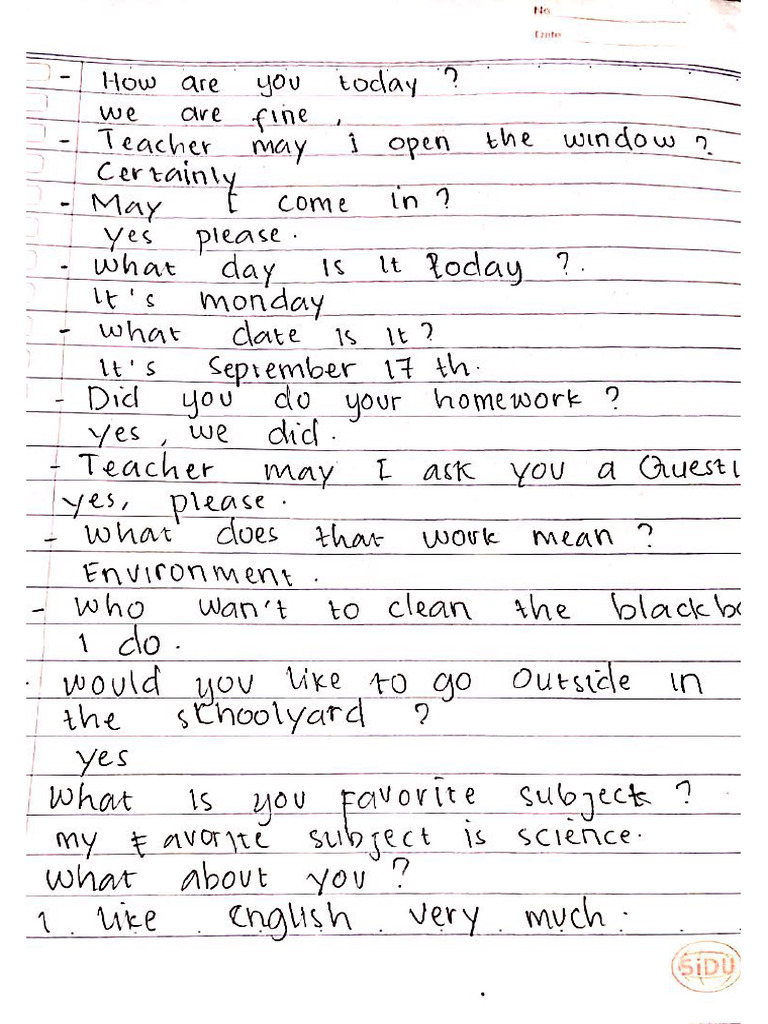 No
Date
- How are you today ?
we are fine ,
- Teacher may i open the window ?
Certainly
- May I come in ?
yes please .
- What day is it today ?.
It's monday
- What date is it ?
It's September 17 th.
- Did you do your homework ?
yes , we did .
- Teacher may I ask you a Questi
yes, please .
- What does that work mean ?
Environment .
- Who wan't to clean the blackbo
I do .
. would you like to go outside in
the schoolyard ?
yes
What is you favorite subject ?
my favorite subject is science.
What about you ?
I like English very much .
SiDU